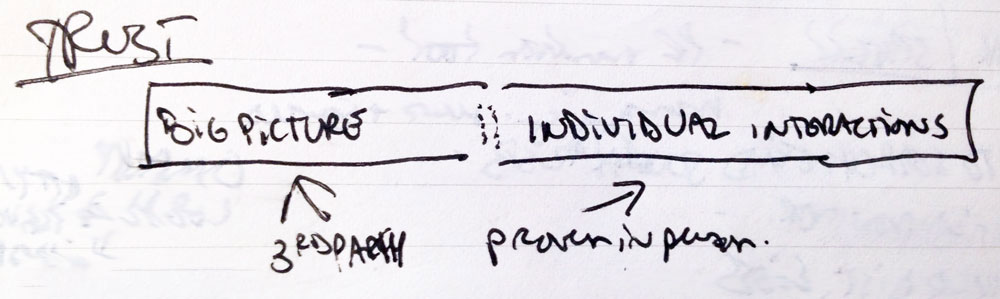 TRUST
BIG PICTURE INDIVIDUAL INTERACTIONS
3RD PARTY proven in person.